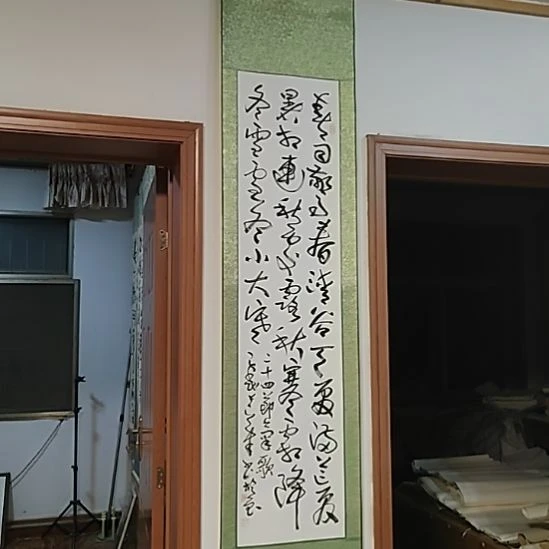 春雨驚春清谷天夏滿芒夏
暑相連秋處露秋寒霜降
冬雪雪冬小大寒
二十四節氣歌